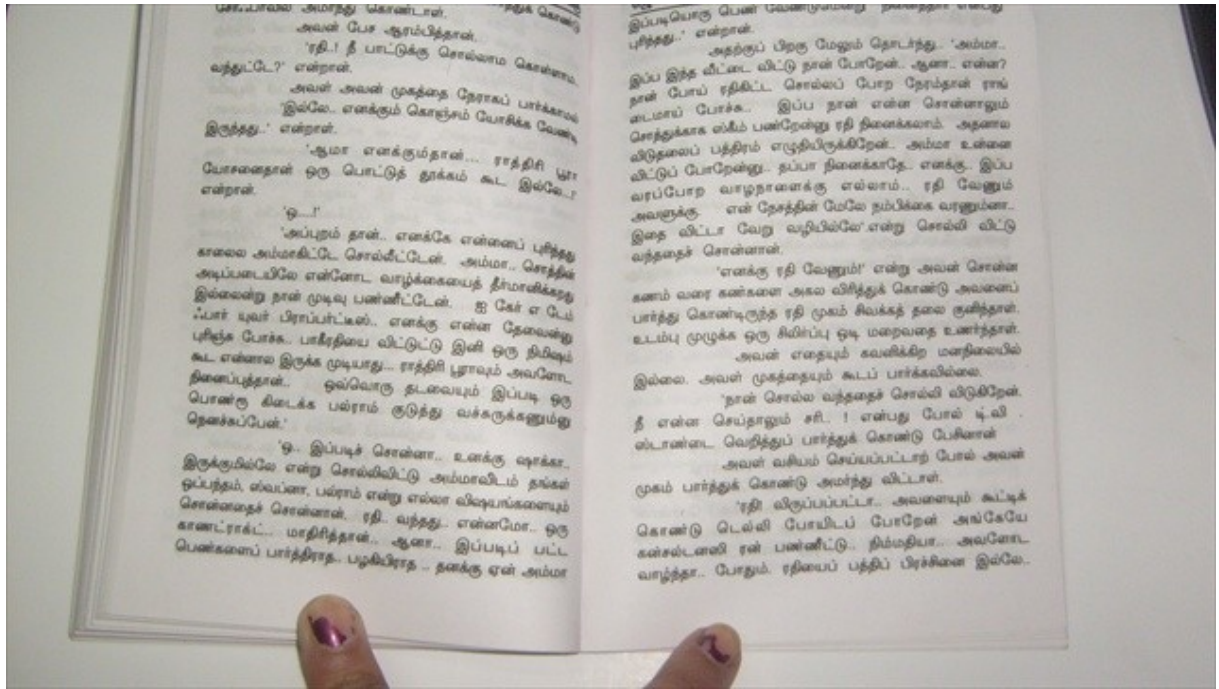 சோஃபாவில் அமர்ந்து கொண்டாள்.
அவன் பேச ஆரம்பித்தான்.
'ரதி..! நீ பாட்டுக்கு சொல்லாம கொள்ளாம
வந்துட்டே?' என்றான்.
அவள் அவன் முகத்தை நேராகப் பார்க்காமல்
'இல்லே.. எனக்கும் கொஞ்சம் யோசிக்க வேண்டி
இருந்தது..' என்றாள்.
'ஆமா எனக்கும்தான்... ராத்திரி பூரா
யோசனைதான் ஒரு பொட்டுத் தூக்கம் கூட இல்லே..!'
என்றான்.
'ஓ....!'
'அப்புறம் தான்.. எனக்கே என்னைப் புரிந்தது
காலைல அம்மாகிட்டே சொல்லீட்டேன். அம்மா.. சொத்தின்
அடிப்படையிலே என்னோட வாழ்க்கையைத் தீர்மானிக்கறது
இல்லைன்று நான் முடிவு பண்ணீட்டேன். ஐ கேர் எ டேம்
ஃபார் யுவர் பிராப்பர்ட்டீஸ்.. எனக்கு என்ன தேவைன்னு
புரிஞ்சு போச்சு.. பாகீரதியை விட்டுட்டு இனி ஒரு நிமிஷம்
கூட என்னால இருக்க முடியாது... ராத்திரி பூராவும் அவளோட
நினைப்புத்தான்.. ஒவ்வொரு தடவையும் இப்படி ஒரு
பொண்ணு கிடைக்க பல்ராம் குடுத்து வச்சுருக்கணும்னு
நெனச்சுப்பேன்.'
'ஓ.. இப்படிச் சொன்னா.. உனக்கு ஷாக்கா..
இருக்குமில்லே என்று சொல்லிவிட்டு அம்மாவிடம் தங்கள்
ஒப்பந்தம், ஸ்வப்னா, பல்ராம் என்று எல்லா விஷயங்களையும்
சொன்னதைச் சொன்னான். ரதி.. வந்தது.. என்னமோ.. ஒரு
காணட்ராக்ட்.. மாதிரித்தான்.. ஆனா.. இப்படிப் பட்ட
பெண்களைப் பார்த்திராத.. பழகியிராத .. தனக்கு ஏன் அம்மா
இப்படியொரு பெண் வேண்டுமென்று நினைத்தாள் என்பது
புரிந்தது..' என்றான்.
அதற்குப் பிறகு மேலும் தொடர்ந்து.. 'அம்மா..
இப்ப இந்த வீட்டை விட்டு நான் போறேன்.. ஆனா.. என்ன?
நான் போய் ரதிகிட்ட சொல்லப் போற நேரம்தான் ராங்
டைமாய் போச்சு.. இப்ப நான் என்ன சொன்னாலும்
சொத்துக்காக ஸ்கீம் பண்றேன்னு ரதி நினைக்கலாம். அதனால
விடுதலைப் பத்திரம் எழுதியிருக்கிறேன்.. அம்மா உன்னை
விட்டுப் போறேன்னு.. தப்பா நினைக்காதே.. எனக்கு.. இப்ப
வரப்போற வாழநாளைக்கு எல்லாம்.. ரதி வேணும்
அவளுக்கு. என் நேசத்தின் மேலே நம்பிக்கை வரணும்னா..
இதை விட்டா வேறு வழியில்லே' என்று சொல்லி விட்டு
வந்ததைச் சொன்னான்.
'எனக்கு ரதி வேணும்!' என்று அவன் சொன்ன
கணம் வரை கண்களை அகல விரித்துக் கொண்டு அவனைப்
பார்த்து கொண்டிருந்த ரதி முகம் சிவக்கத் தலை குனிந்தாள்.
உடம்பு முழுக்க ஒரு சிலிர்ப்பு ஓடி மறைவதை உணர்ந்தாள்.
அவன் எதையும் கவனிக்கிற மனநிலையில்
இல்லை. அவள் முகத்தையும் கூடப் பார்க்கவில்லை.
'நான் சொல்ல வந்ததைச் சொல்லி விடுகிறேன்.
நீ என்ன செய்தாலும் சரி.. ! என்பது போல் டி.வி .
ஸ்டாண்டை வெறித்துப் பார்த்துக் கொண்டு பேசினான்
அவள் வசியம் செய்யப்பட்டாற் போல் அவன்
முகம் பார்த்துக் கொண்டு அமர்ந்து விட்டாள்.
'ரதி! விருப்பப்பட்டா.. அவளையும் கூட்டிக்
கொண்டு டெல்லி போயிடப் போறேன் அங்கேயே
கன்சல்டனஸி ரன் பண்ணீட்டு.. நிம்மதியா.. அவளோட
வாழ்ந்தா.. போதும். ரதியைப் பத்திப் பிரச்சினை இல்லே..